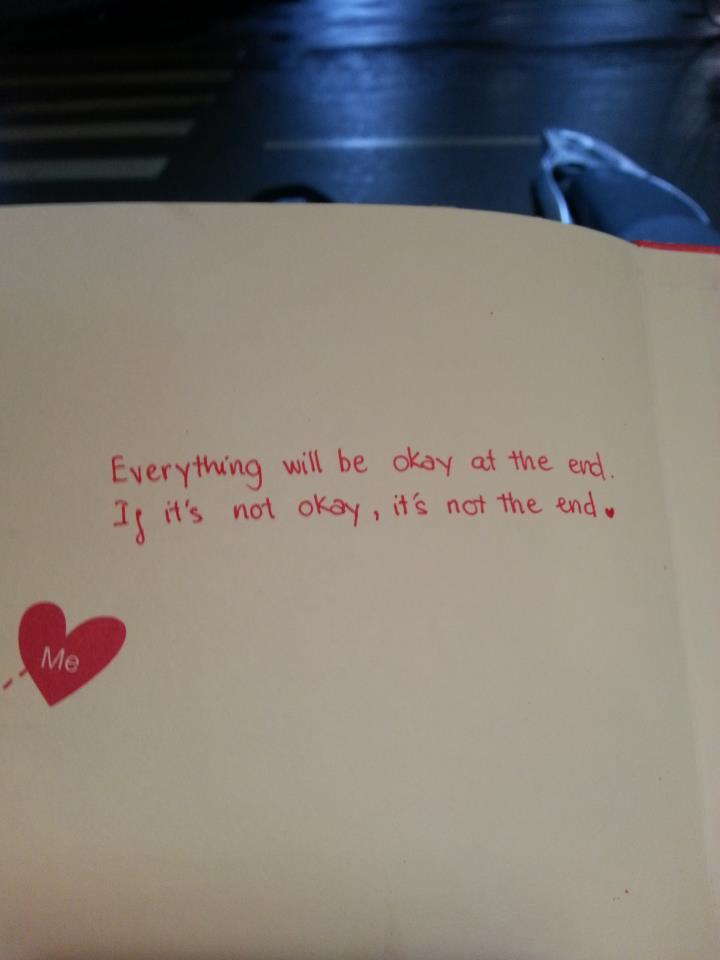 Everything will be okay at the end.
If it's not okay, it's not the end.
Me